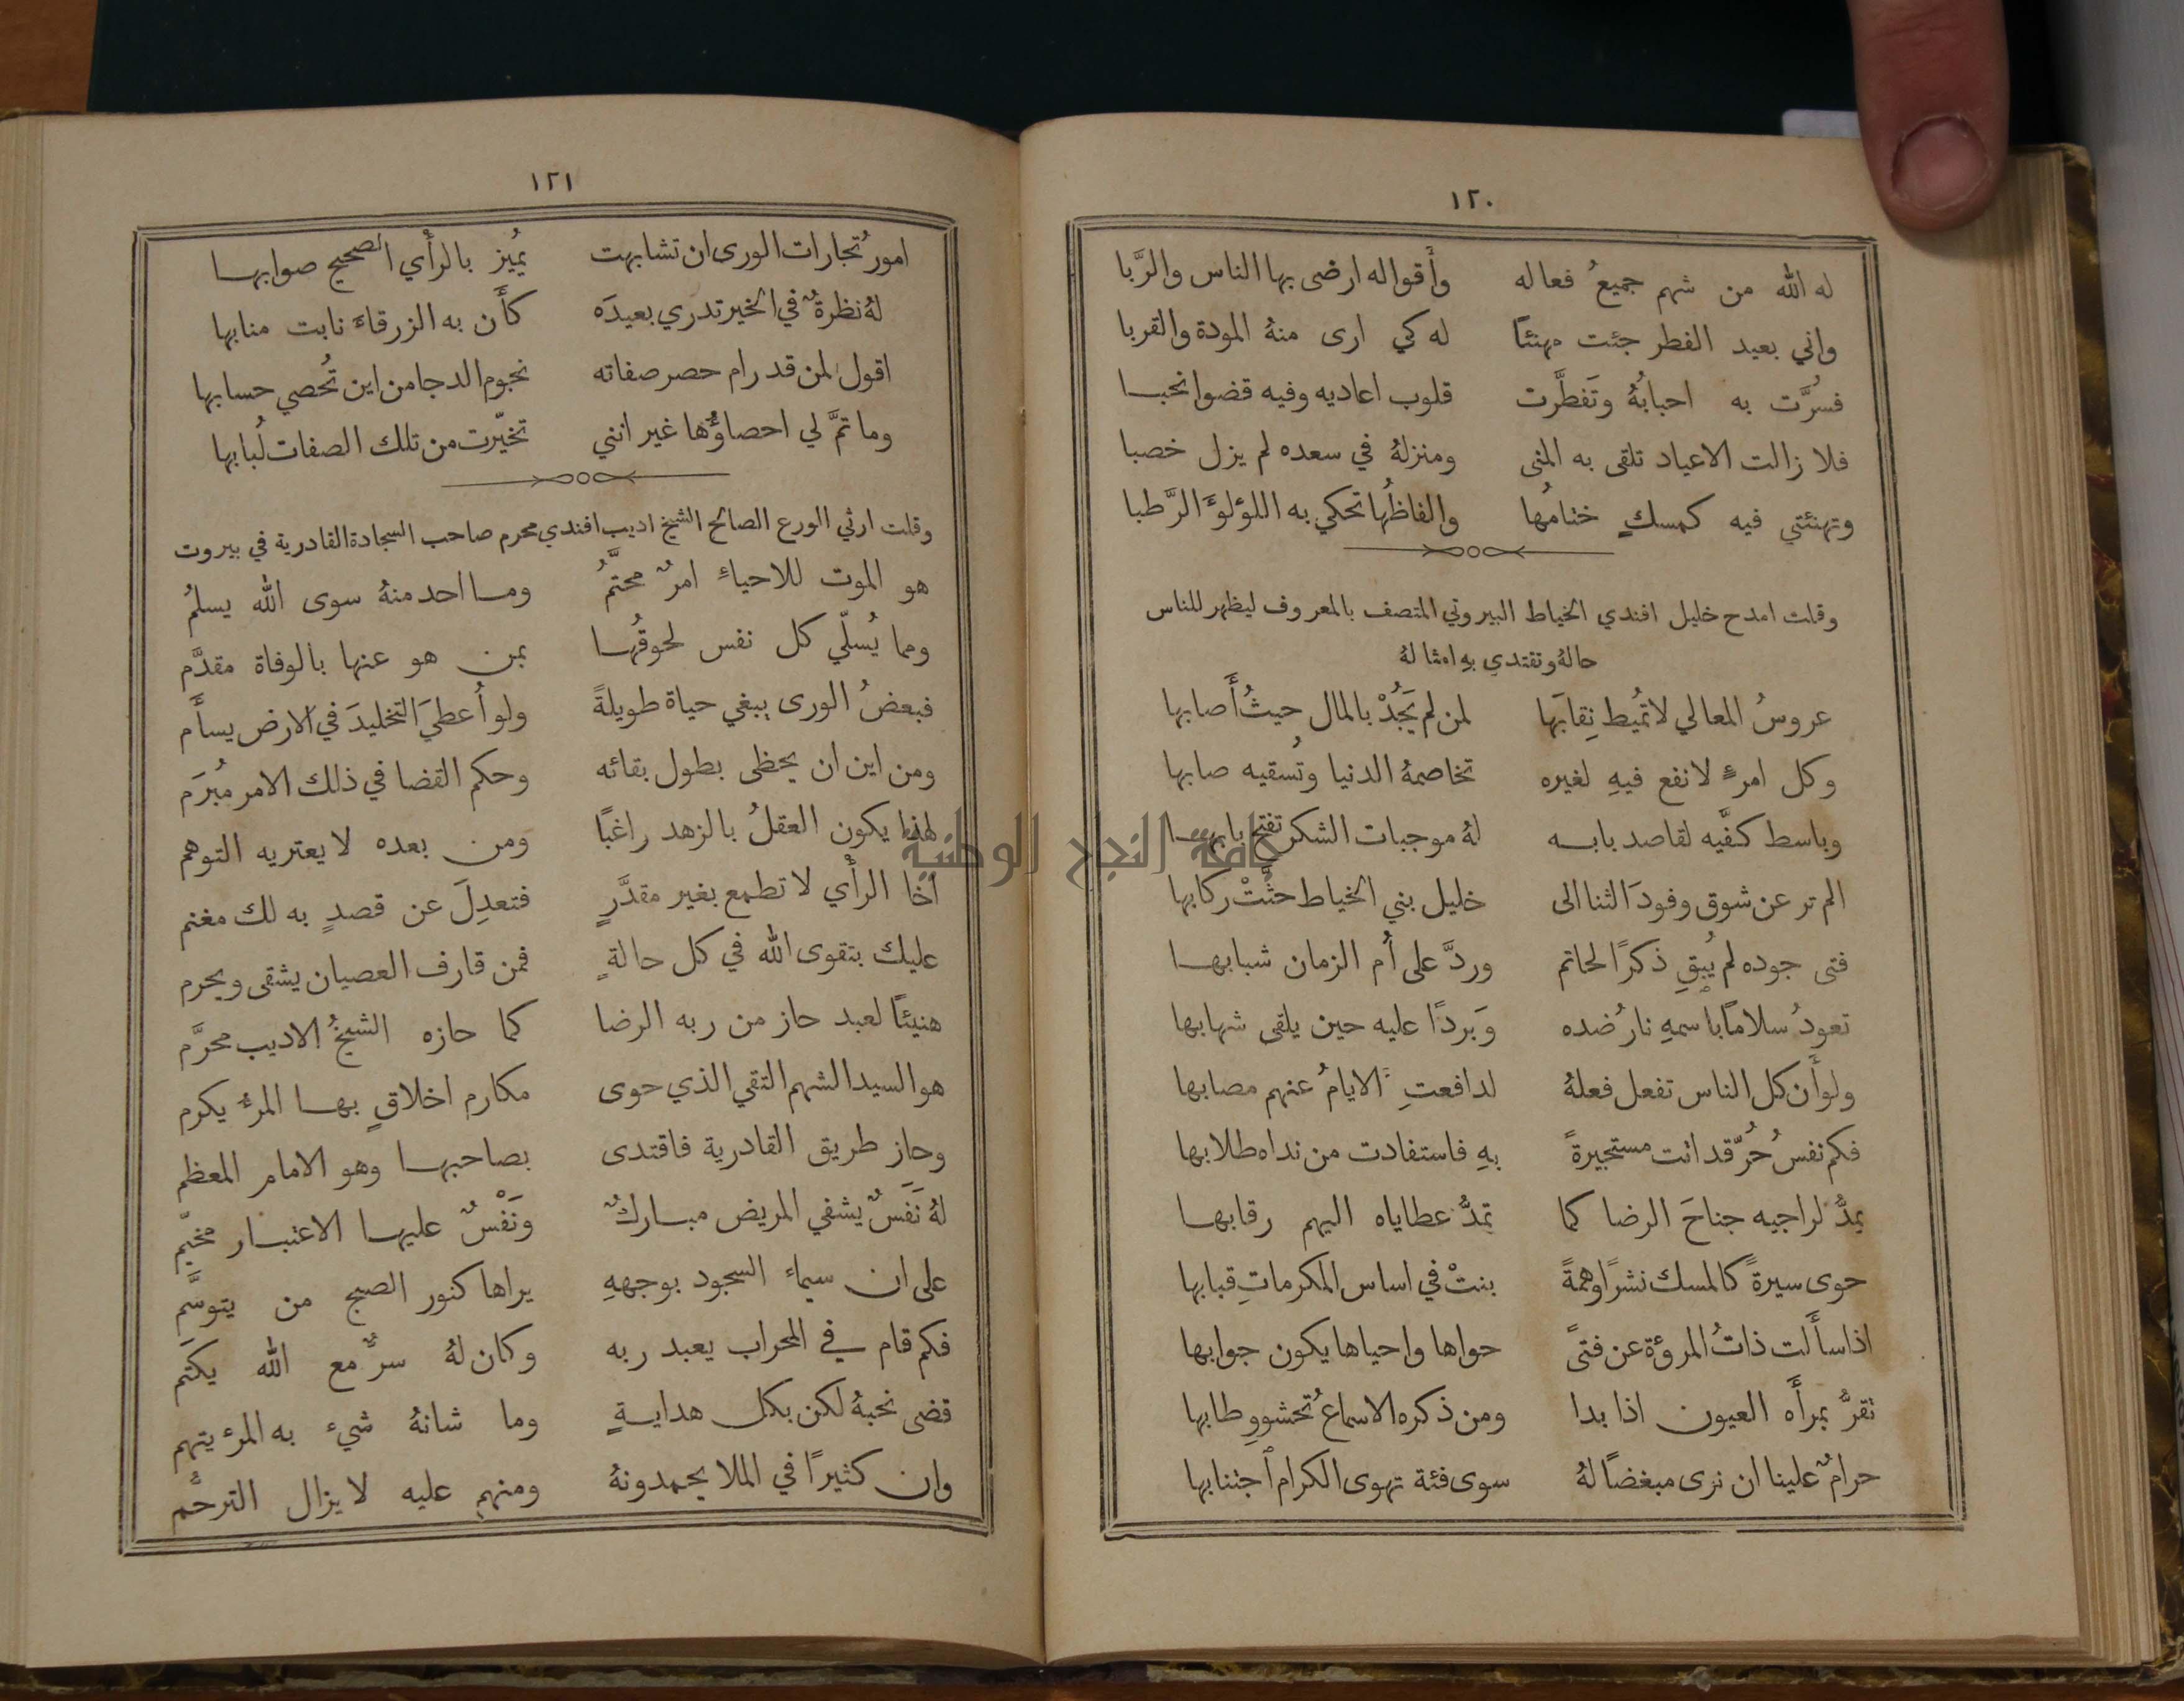 ١٢٠
له الله من شهم جميعُ فعاله وأَقواله ارضى بها الناس والرَّبا
واني بعيد الفطر جئت مهنئًا له كي ارى منهُ المودة والقربا
فسُرَّت به احبابُهُ وتَفطَّرت قلوب اعاديه وفيه قضوا نحبا
فلا زالت الاعياد تلقى به المنى ومنزلهُ في سعده لم يزل خصبا
وتهنئتي فيه كمسكٍ ختامُها والفاظُها تحكي به اللؤلوَّ الرَّطبا
وقلت امدح خليل افندي الخياط البيروتي المتصف بالمعروف ليظهر للناس
حالهُ وتقتدي بهِ امثالهُ
عروسُ المعالي لا تُميط نِقابَها لمن لم يَجُدْ بالمال حيثُ أَصابها
وكل امرءٍ لا نفع فيهِ لغيره تخاصمهُ الدنيا وتُسقيه صابها
وباسط كفَّيه لقاصد بابه لهُ موجبات الشكر تفتح بابها
الم تر عن شوق وفودَ الثنا الى خليل بني الخياط حثَّتْ ركابها
فتى جوده لم يُبقِ ذكرًا لحاتم وردَّ على أُم الزمان شبابها
تعودُ سلامًا باسمهِ نارُ ضده وَبردًا عليه حين يلقى شهابها
ولو أَن كل الناس تفعل فعلهُ لدافعتِ الايامُ عنهم مصابها
فكم نفسُ حُرّ قد اتت مستجيرةً بهِ فاستفادت من نداه طلابها
يمدُّ لراجيه جناحَ الرضا كما تمدُّ عطاياه اليهم رقابها
حوى سيرةً كالمسك نشرًا وهمةً بنتْ في اساس المكرماتِ قبابها
اذا سأَلت ذاتُ المروَّة عن فتىً حواها واحياها يكون جوابها
تقرُّ بمرآه العيون اذا بدا ومن ذكره الاسماعُ تحشو وطابها
حرامٌ علينا ان نرى مبغضًا لهُ سوى فئة تهوى الكرام اجتنابها
١٢١
امورُ تجارات الورى ان تشابهت يُميز بالرأي الصحيح صوابها
لهُ نظرةٌ في الخير تدري بعيدَه كأَن به الزرقاءَ نابت منابها
اقول لمن قد رام حصر صفاته نجوم الدجا من اين تُحصي حسابها
وما تمَّ لي احصاؤُها غير انني تخيّرت من تلك الصفات لُبابها
وقلت ارثي الورع الصالح الشيخ اديب افندي محرم صاحب السجادة القادرية في بيروت
هو الموت للاحياءِ امرٌ محتَّمُ وما احد منهُ سوى الله يسلمُ
ومما يُسلّي كل نفس لحوقُها بمن هو عنها بالوفاة مقدَّم
فبعضُ الورى يبغي حياة طويلةً ولو أُعطيَ التخليدَ في الارض يسأَم
ومن اين ان يحظى بطول بقائه وحكم القضا في ذلك الامر مُبرَم
لهذا يكون العقلُ بالزهد راغبًا ومن بعده لا يعتريه التوهم
أَخا الرأْي لا تطمع بغير مقدَّرٍ فتعدِلَ عن قصدٍ به لك مغنم
عليك بتقوى الله في كل حالةٍ فمن قارف العصيان يشقى ويحرم
هنيئًا لعبد حاز من ربه الرضا كما حازه الشيخُ الاديب محرَّم
هو السيد الشهم التقي الذي حوى مكارم اخلاقٍ بها المرءُ يكرم
وحاز طريق القادرية فاقتدى بصاحبها وهو الامام المعظم
لهُ نَفَسٌ يشفي المريض مباركٌ ونَفْسٌ عليها الاعتبار مخيّم
على ان سيماء السجود بوجههِ يراها كنور الصبح من يتوسَّم
فكم قام في المحراب يعبد ربه وكان لهُ سرٌّ مع الله يكتَم
قضى نحبهُ لكن بكل هدايةٍ وما شانهُ شيء به المرء يتهم
وان كثيرًا في الملا يحمدونهُ ومنهم عليه لا يزال الترحُّم
جامعة النجاح الوطنية